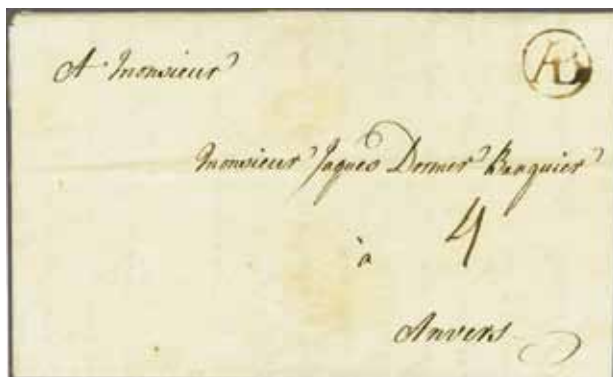 A Monsieur
AB
Monsieur Jaques Dormer Banquier
à 4
Anvers